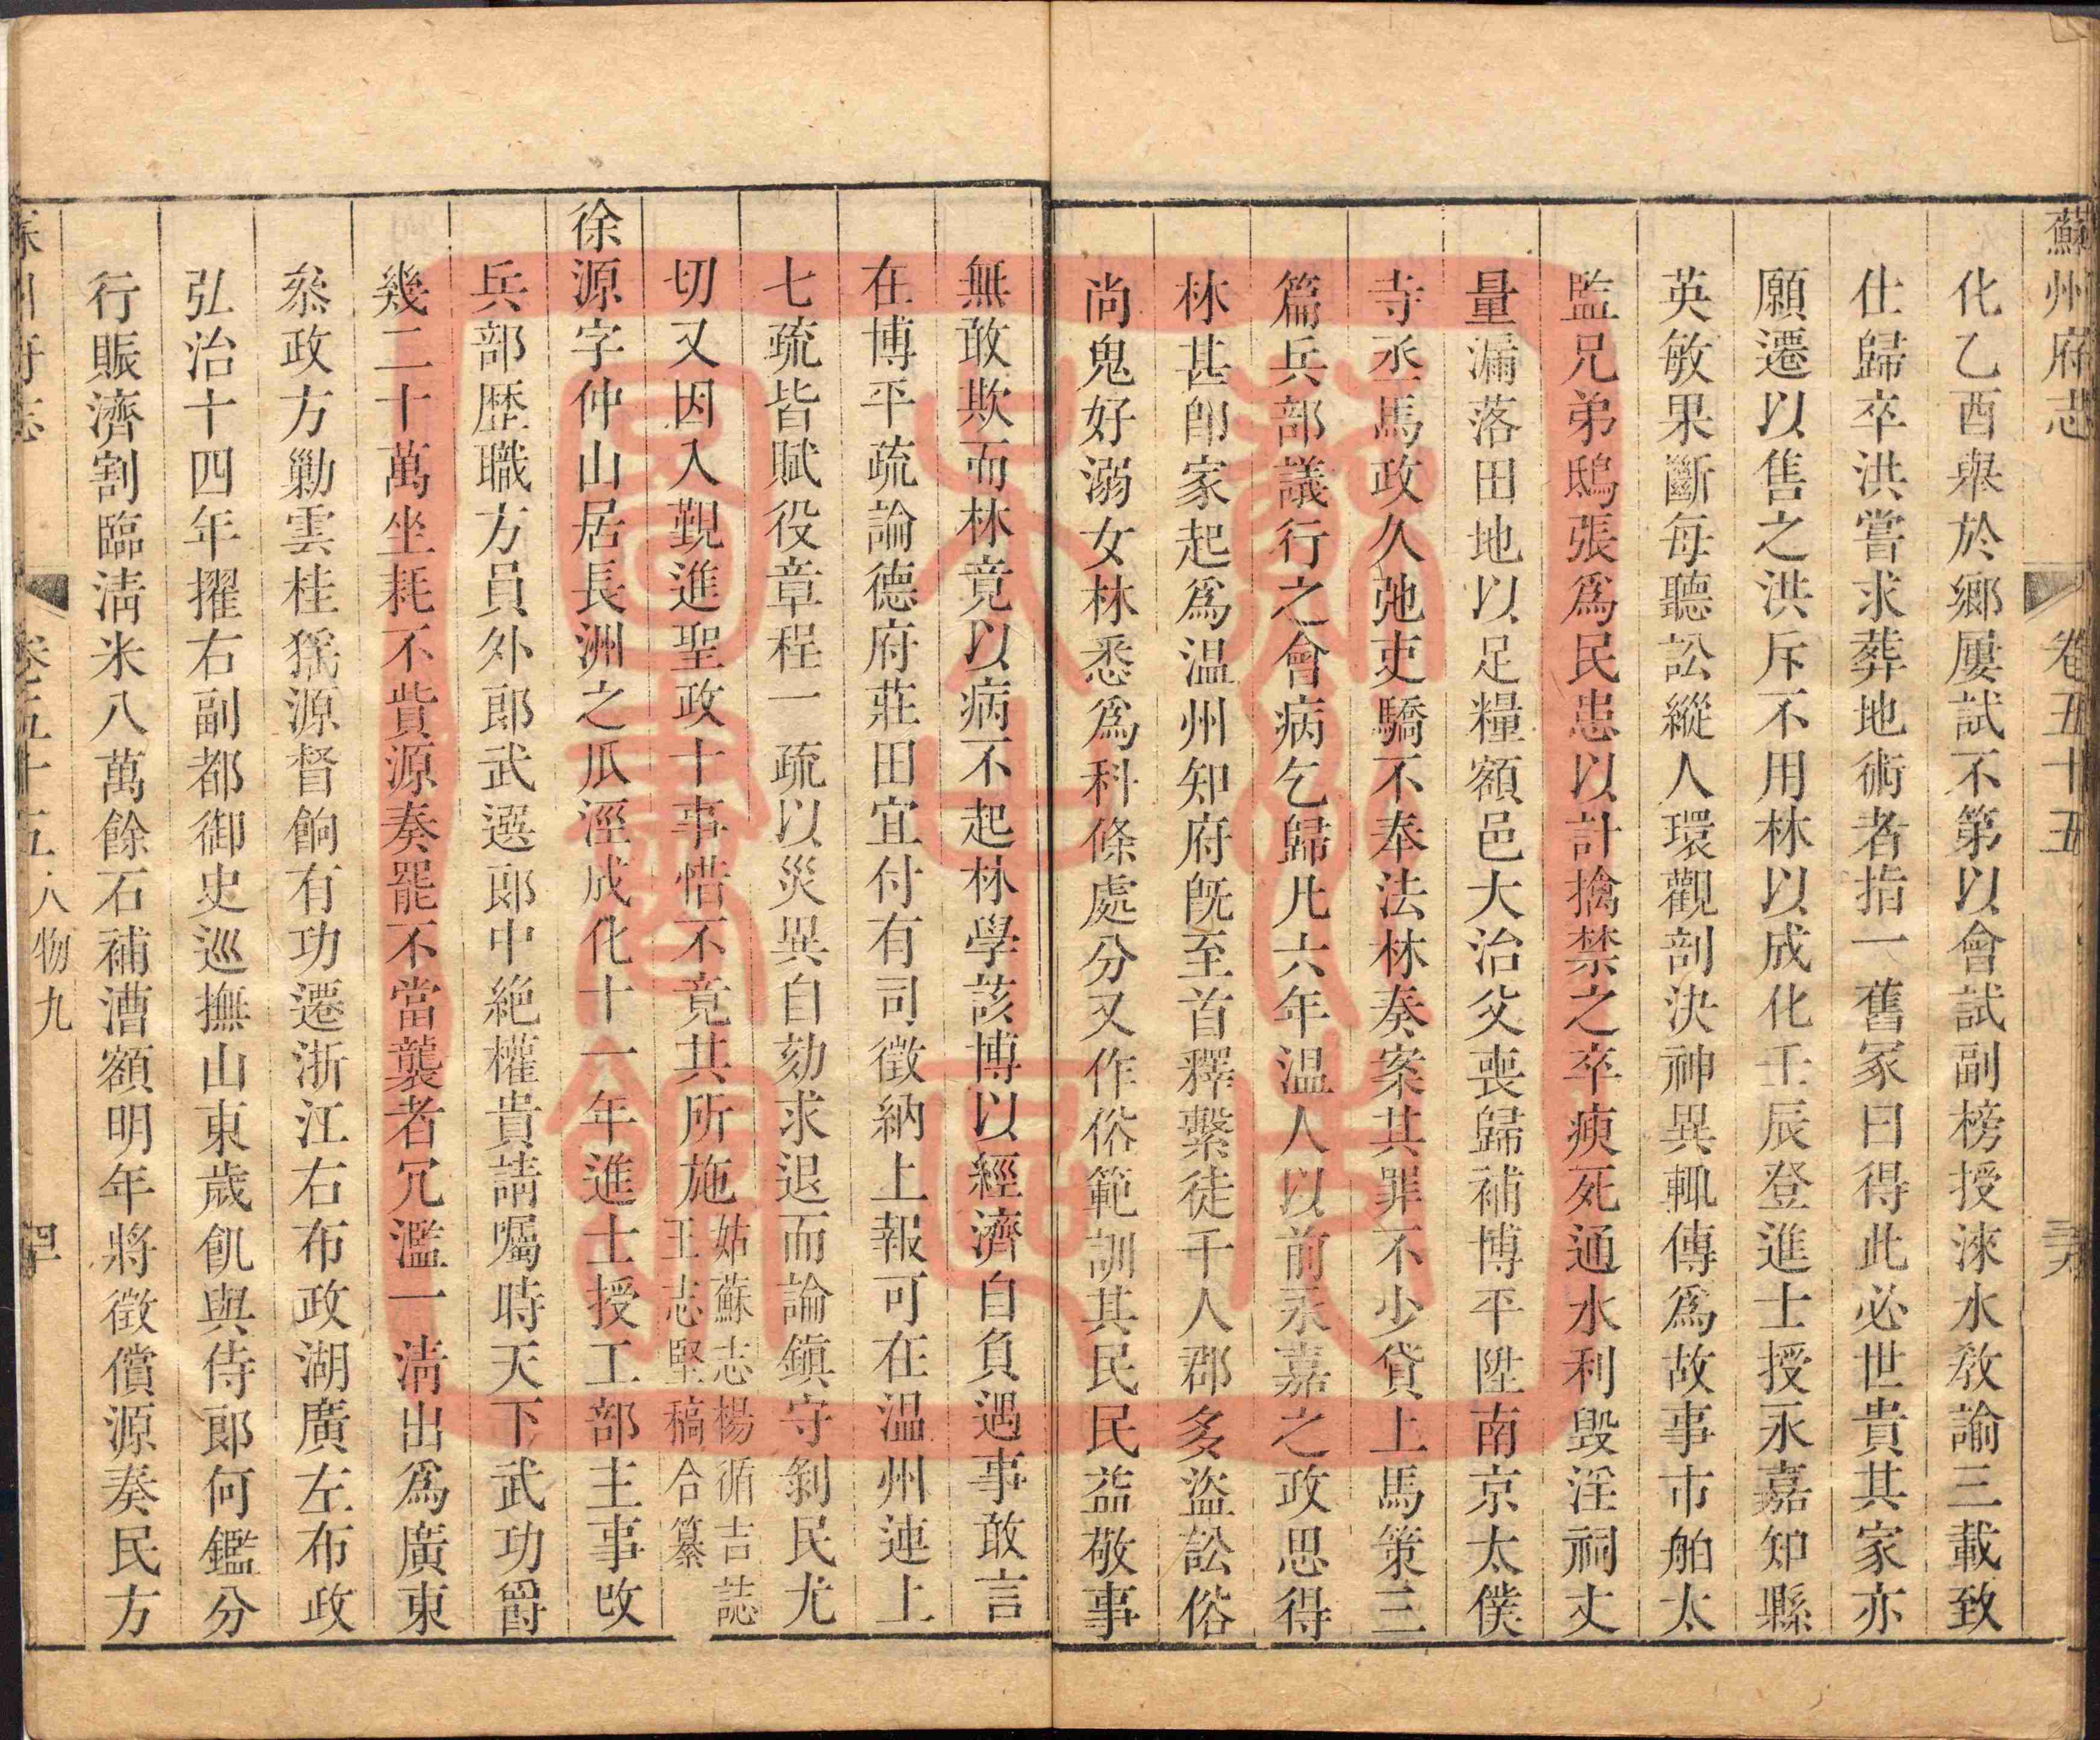 蘇州府志 卷五十五
化乙酉舉於鄉屢試不第以會試副榜授淶水教諭三載致
仕歸卒洪嘗求葬地術者指一舊冢曰得此必世貴其家亦
願遷以售之洪斥不用林以成化壬辰登進士授永嘉知縣
英敏果斷每聽訟縱人環觀剖決神異輒傳爲故事市舶太
監兄弟鴟張爲民患以計擒禁之卒瘐死通水利毀淫祠丈
量漏落田地以足糧額邑大治父喪歸補博平陞南京太僕
寺丞馬政久弛吏驕不奉法林奏案其罪不少貸上馬策三
篇兵部議行之會病乞歸凡六年温人以前永嘉之政思得
林甚卽家起爲温州知府旣至首釋繫徒千人郡多盜訟俗
尚鬼好溺女林悉爲科條處分又作俗範訓其民民益敬事
無敢欺而林竟以病不起林學該博以經濟自負遇事敢言
在博平疏論德府莊田宜付有司徵納上報可在温州連上
七疏皆賦役章程一疏以災異自劾求退而論鎮守剝民尤
切又因入覲進聖政十事惜不竟其所施 姑蘇志楊循吉誌
王志堅稿合纂
徐源字仲山居長洲之瓜涇成化十一年進士授工部主事改
兵部歷職方員外郎武選郎中絶權貴請囑時天下武功爵
幾二十萬坐耗不貲源奏罷不當襲者冗濫一淸出爲廣東
叅政方勦雲桂猺源督餉有功遷浙江右布政湖廣左布政
弘治十四年擢右副都御史巡撫山東歲飢與侍郎何鑑分
行賑濟割臨淸米八萬餘石補漕額明年將徵償源奏民方
蘇州府志 卷五十五 人物九